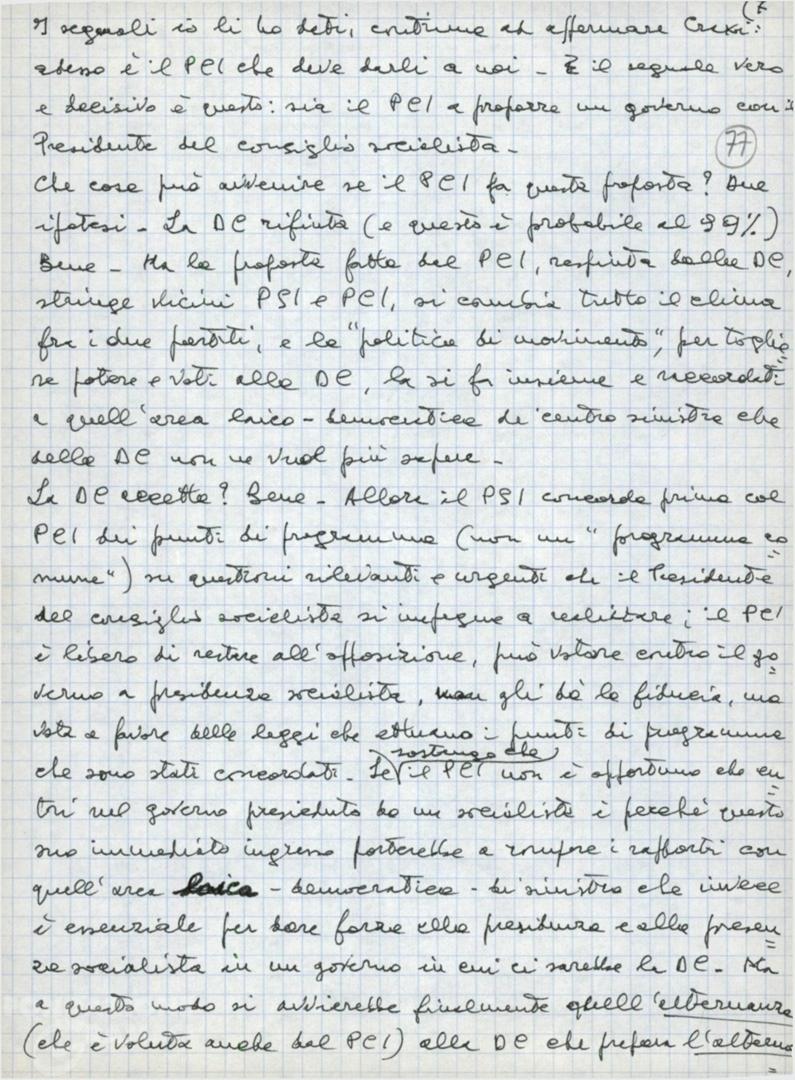 (7
I segnali io li ho dati, continua ad affermare Craxi:
adesso è il PCI che deve darli a noi - E il segnale vero
e decisivo è questo: sia il PCI a proporre un governo con il
Presidente del consiglio socialista -
77
Che cosa può avvenire se il PCI fa questa proposta? Due
ipotesi - La DC rifiuta (e questo è probabile al 99%)
Bene - Ma la proposta fatta dal PCI, respinta dalla DC,
stringe vicini PSI e PCI, si cambia tutto il clima
fra i due partiti, e la "politica di movimento", per toglie
re potere e voti alla DC, la si fa insieme e raccordati
a quell'area laico-democratica di centro sinistra che
della DC non ne vuol più sapere -
La DC accetta? Bene - Allora il PSI concorda prima col
PCI dei punti di programma (non un "programma co
mune") su questioni rilevanti e urgenti che il Presidente
del consiglio socialista si impegna a realizzare; il PCI
è libero di restare all'opposizione, può votare contro il go
verno a presidenza socialista, non gli dà la fiducia, ma
vota a favore delle leggi che attuano i punti di programma
che sono stati concordati - Se il PCI non è opportuno che en
sostengo che
tri nel governo presieduto da un socialista è perché questo
suo immediato ingresso porterebbe a rompere i rapporti con
quell'area laica - democratica - di sinistra che invece
è essenziale per dare forza alla presidenza e alla presen
za socialista in un governo in cui ci sarebbe la DC - Ma
a questo modo si avvierebbe finalmente quell'alternanza
(che è voluta anche dal PCI) alla DC che prepara l'alterna